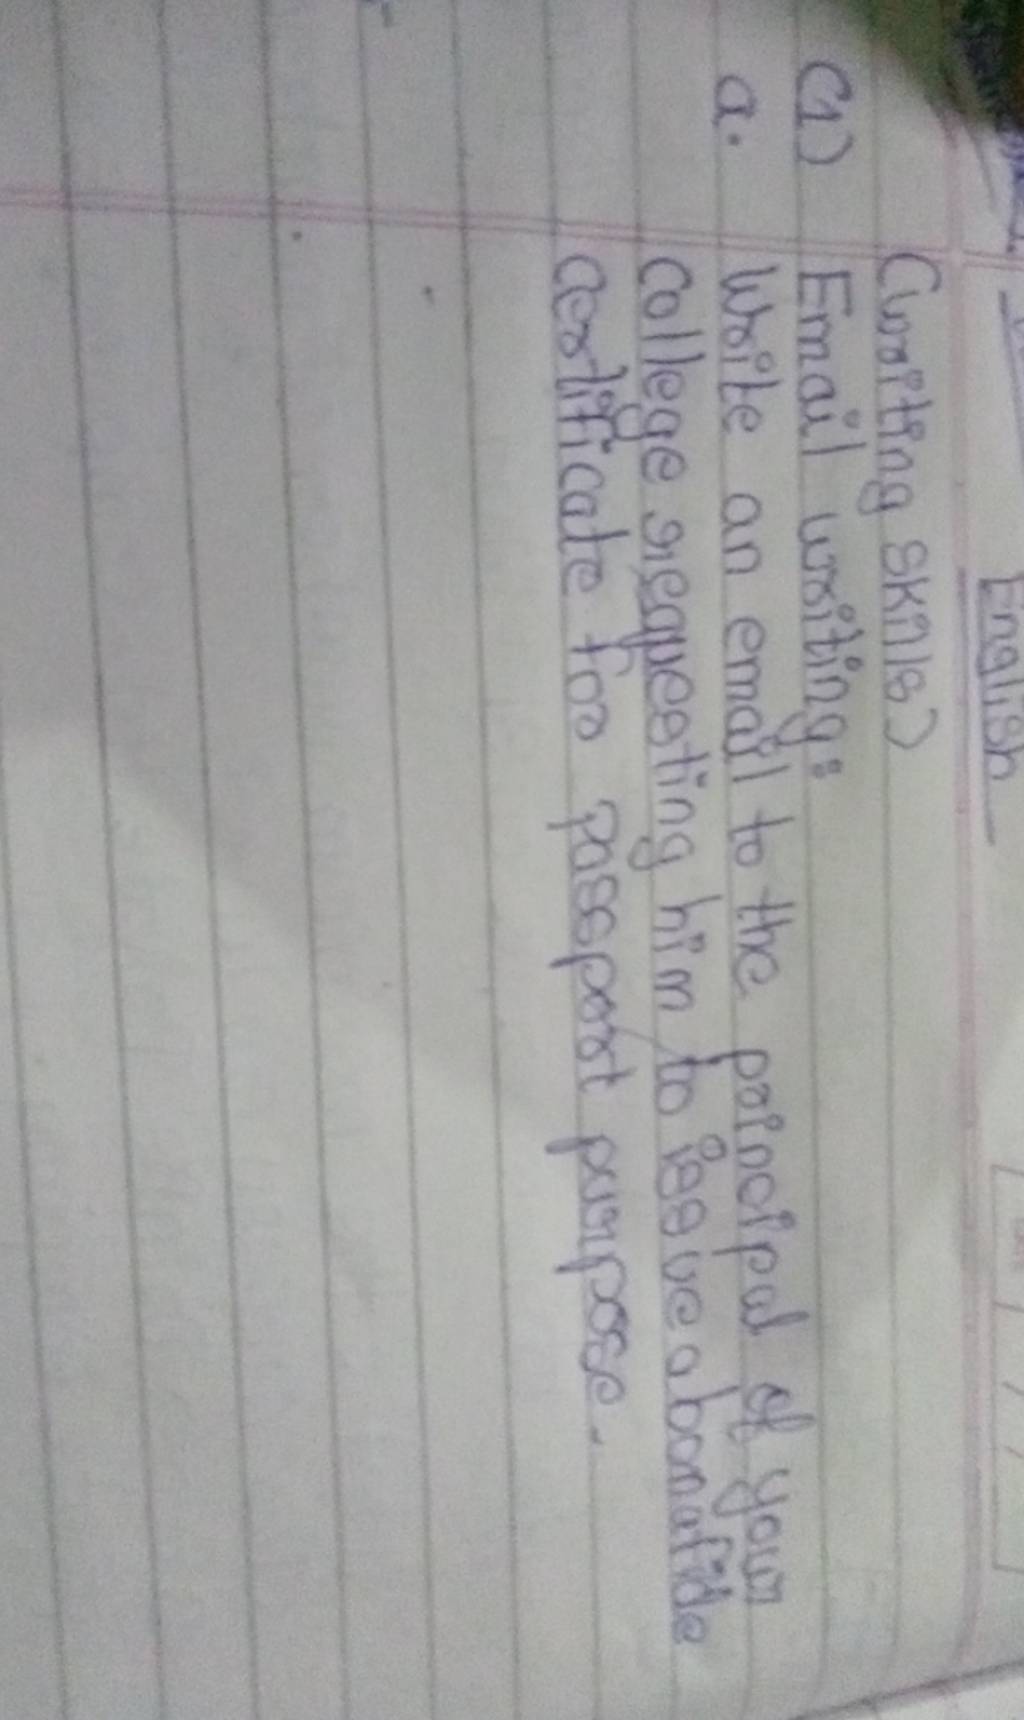 English
(Writing skills)
(1) Email writing:
a. Write an email to the principal of your
college requesting him to issue a bonafide
certificate for passport purpose.